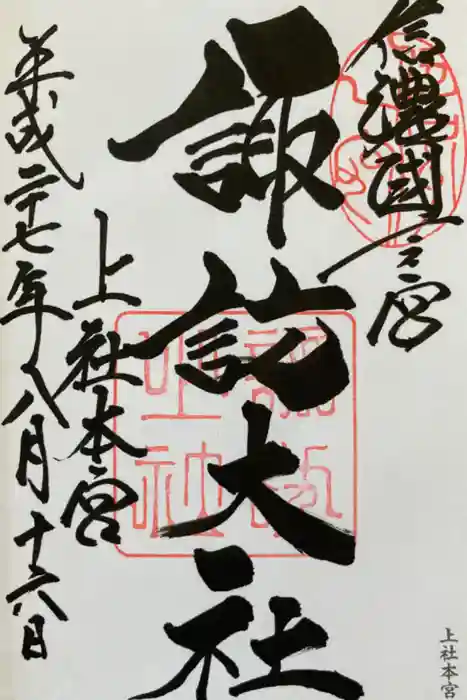 信濃國一之宮
諏訪大社
上社本宮
平成二十七年八月十六日
上社本宮